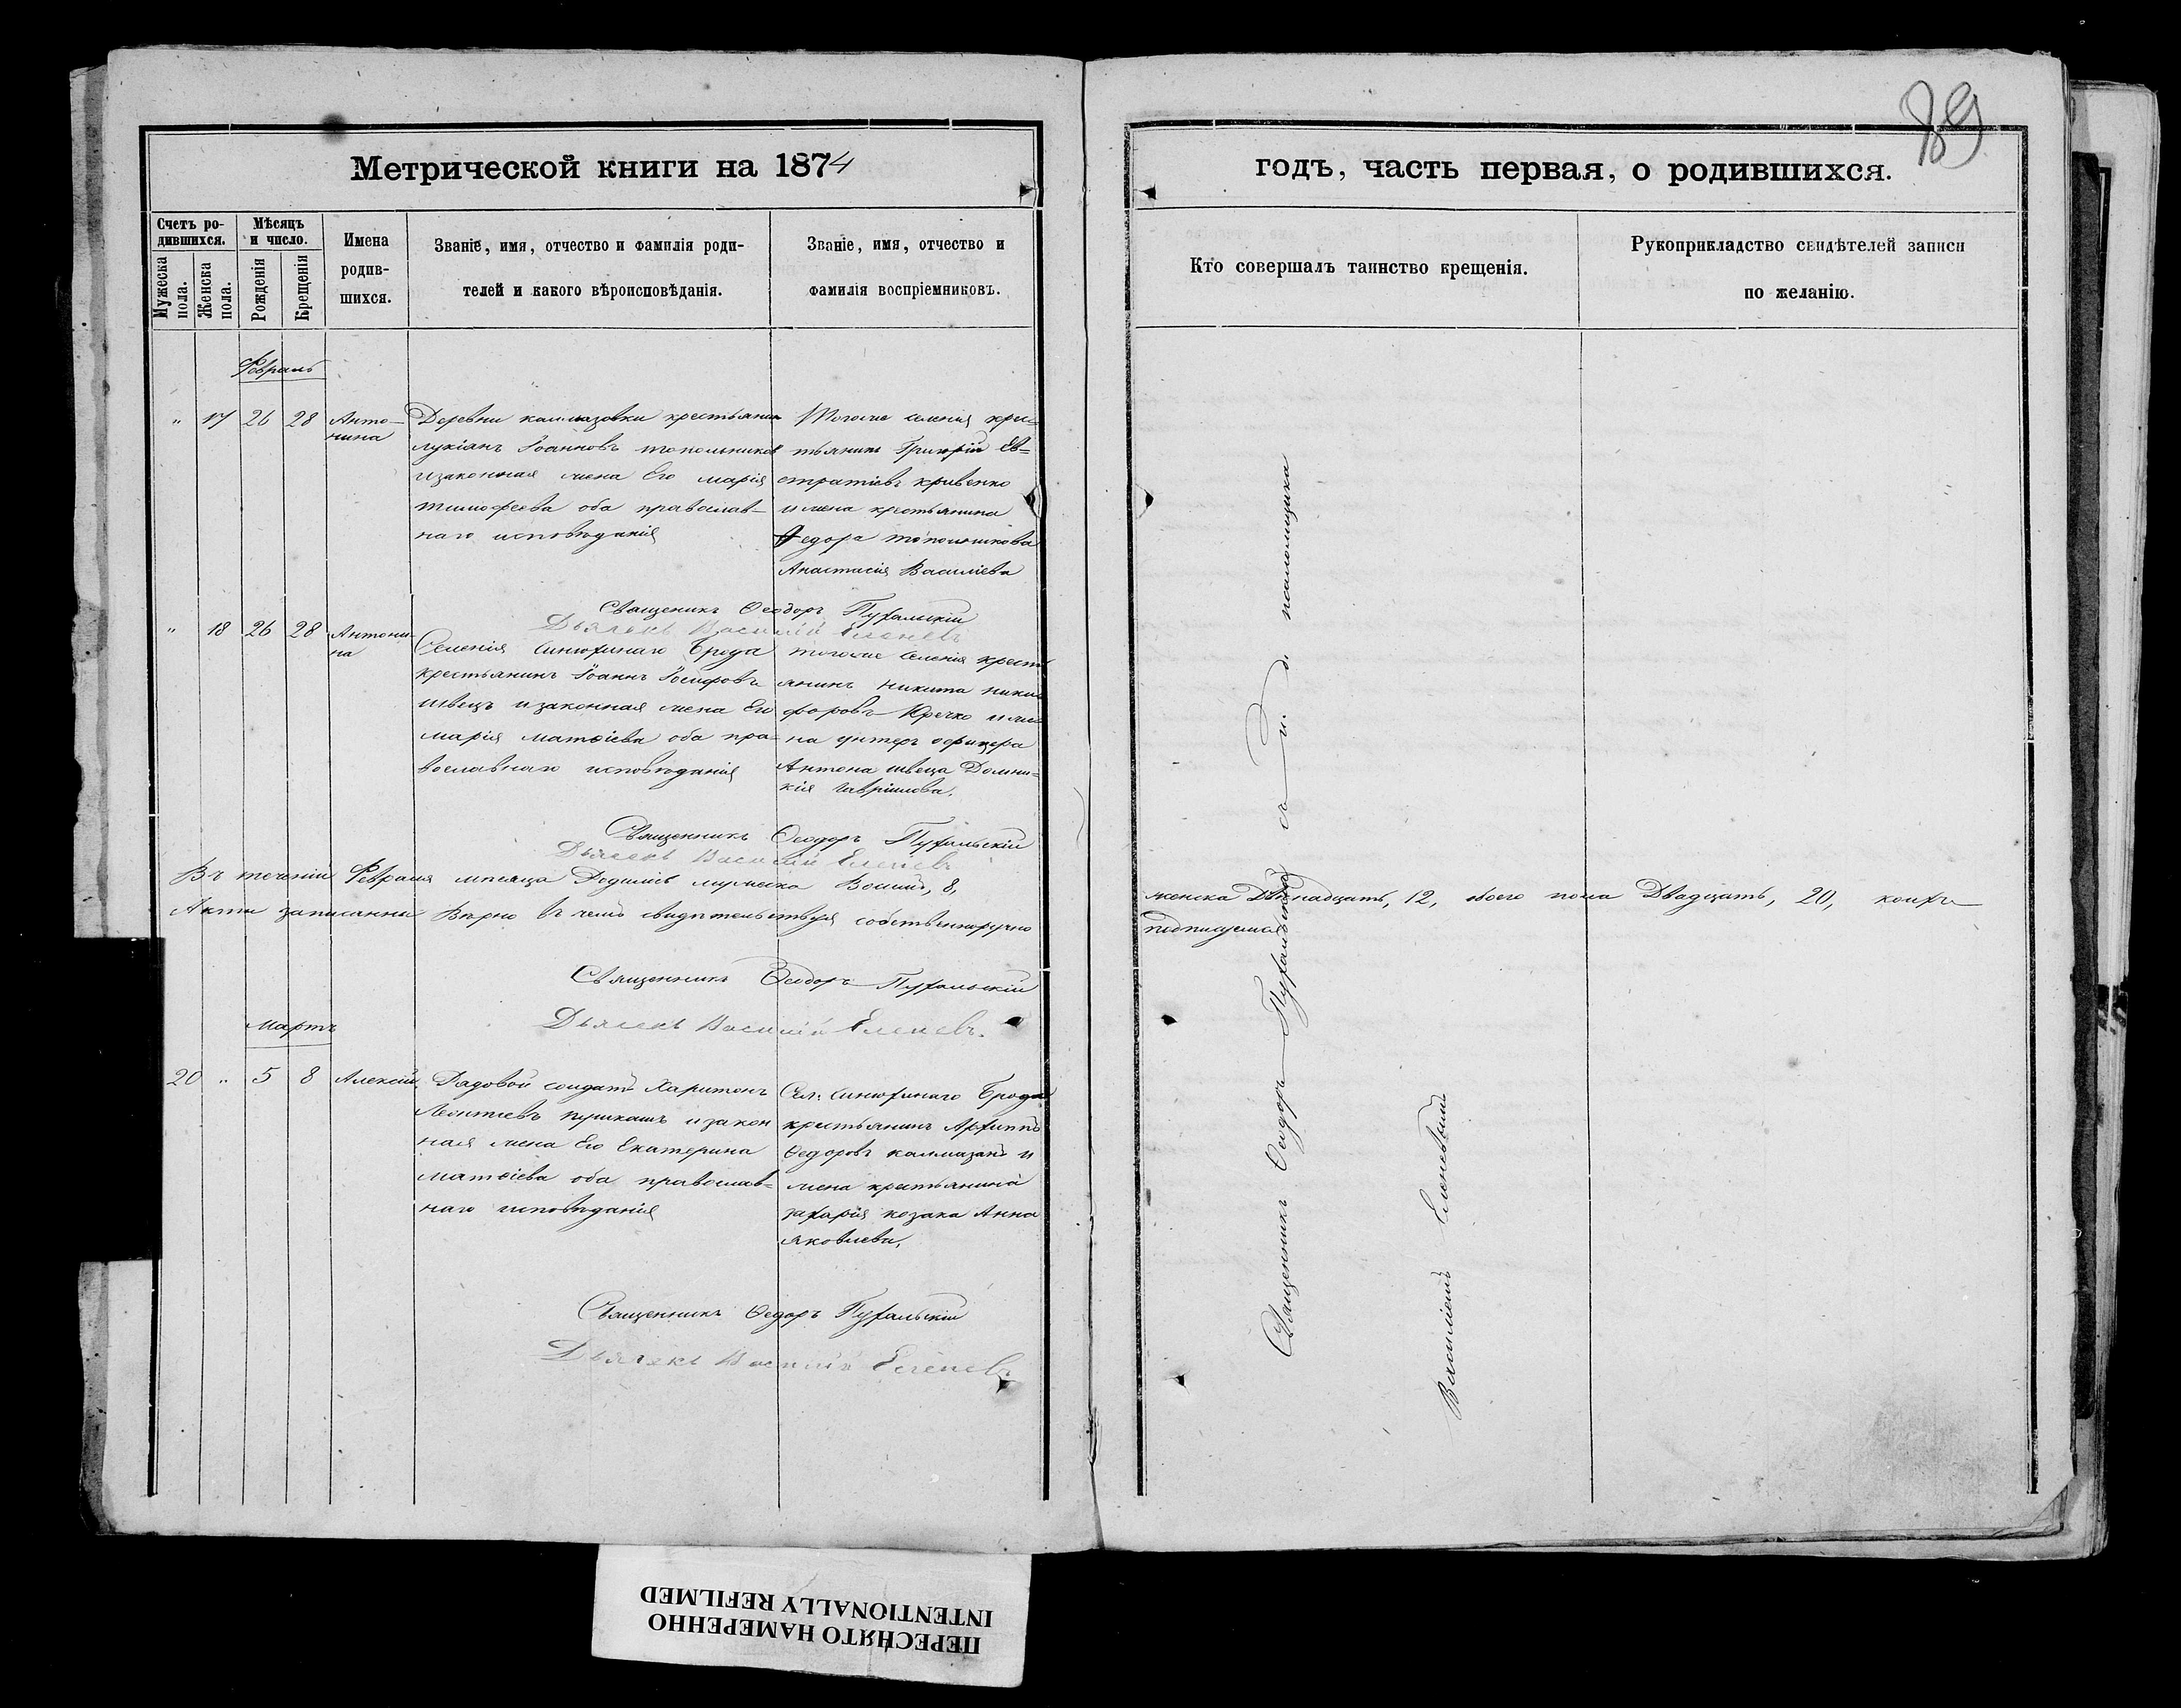 89
Метрической книги на 1874
годъ, часть первая, о родившихся.
Счетъ ро-
дившихся.
Мѣсяцъ
и число.
Мужеска
пола.
Женска
пола.
Рожденія
Крещенія
Имена
родив-
шихся.
Званіе, имя, отчество и фамилія роди-
телей и какого вѣроисповѣданія.
Званіе, имя, отчество и
фамилія воспріемниковъ.
Кто совершалъ таинство крещенія.
Рукоприкладство свидѣтелей записи
по желанію.
Февраль
" 17 26 28
Анто-
нина
Деревни калмазовки крестьянин
лукіанъ Іоанновъ топольников
и законная жена Его марія
тимофеева оба православ-
наго исповѣданія
Тогоже селенія крес-
тьянинъ Григорій Ев-
стратіевъ кривенко
и жена крестьянина
Федора топольникова
Анастасія Василіева
Священикъ Ѳеодоръ Пухальскій
Дьячекъ Василій Еленевъ
" 18 26 28
Антони-
на
Селенія Синюхинаго Брода
крестьянинъ Іоаннъ Іосифовъ
швецъ и законная жена Его
марія матѳіева оба пра-
вославнаго исповѣданія
тогоже селенія кресть
янинъ никита ники
форовъ Кречко и же
на унтеръ офицера
Антона швеца Домни-
кія Гавріилова.
Священникъ Ѳеодоръ Пухальскій
Дьячекъ Василій Еленевъ
Въ теченіи Февраля мѣсяца Родилось мужеска Восимь, 8,
женска Двѣнадцать, 12, обоего пола Двадцать, 20, коихъ
Акты записанны Вѣрно въ чемъ свидѣтельствуя собственноручно
подписуемся
Священникъ Ѳеодоръ Пухальскій
Дьячекъ Василій Еленевъ.
Мартъ
20 " 5 8 Алексій
Рядовой солдатъ Харитонъ
Леонтіевъ пушкашъ и закон
ная жена Его Екатерина
матѳіева оба православ-
наго исповѣданія
Сел: Синюхинаго Брода
крестьянинъ Архиппъ
Ѳедоровъ калмазанъ и
жена крестьянина
захарія козака Анна
яковлева.
Священникъ Ѳеодоръ Пухальскій
Дьячекъ Василій Еленевъ
Священникъ Ѳеодоръ Пухальскій съ И. д. псаломщика
Василіемъ Еленевымъ
ПЕРЕСНЯТО НАМЕРЕННО
INTENTIONALLY REFILMED